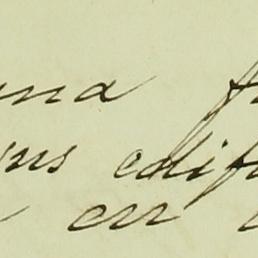 una f
ns edif
en